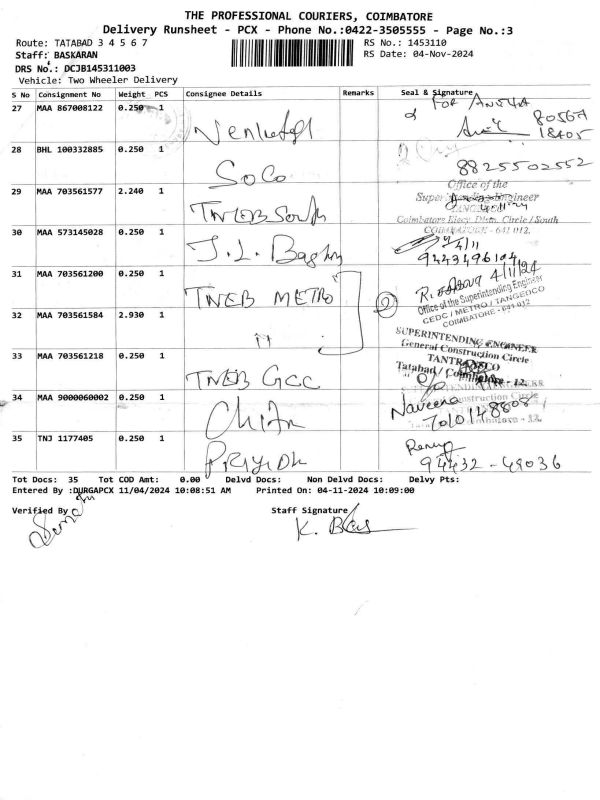 THE PROFESSIONAL COURIERS, COIMBATORE
Delivery Runsheet - PCX - Phone No.:0422-3505555 - Page No.:3
Route: TATABAD 3 4 5 6 7
RS No.: 1453110
Staff: BASKARAN
RS Date: 04-Nov-2024
DRS No.: DCJB145311003
Vehicle: Two Wheeler Delivery
S No Consignment No Weight PCS Consignee Details Remarks Seal & Signature
27 MAA 867008122 0.250 1 FOR
80567
18405
28 BHL 100332885 0.250 1 SoCo 8825502552
29 MAA 703561577 2.240 1 TNEB South
Office of the
Superintending Engineer
TANGEDCO
Coimbatore Elecy. Distn. Circle / South
COIMBATORE - 641 012.
30 MAA 573145028 0.250 1 J.L. 4/11
9443496104
31 MAA 703561200 0.250 1 TNEB METRO 2 4/11/24
Office of the Superintending Engineer
CEDC / METRO / TANGEDCO
COIMBATORE - 641 012
32 MAA 703561584 2.930 1 "
SUPERINTENDING ENGINEER
General Construction Circle
33 MAA 703561218 0.250 1 TNEB GCC
Tatabad / - 12.
34 MAA 9000060002 0.250 1 Naveena
7010148808
35 TNJ 1177405 0.250 1 PRIYA
94432-49036
Tot Docs: 35 Tot COD Amt: 0.00 Delvd Docs: Non Delvd Docs: Delvy Pts:
Entered By :DURGAPCX 11/04/2024 10:08:51 AM Printed On: 04-11-2024 10:09:00
Verified By Staff Signature
K. Bas